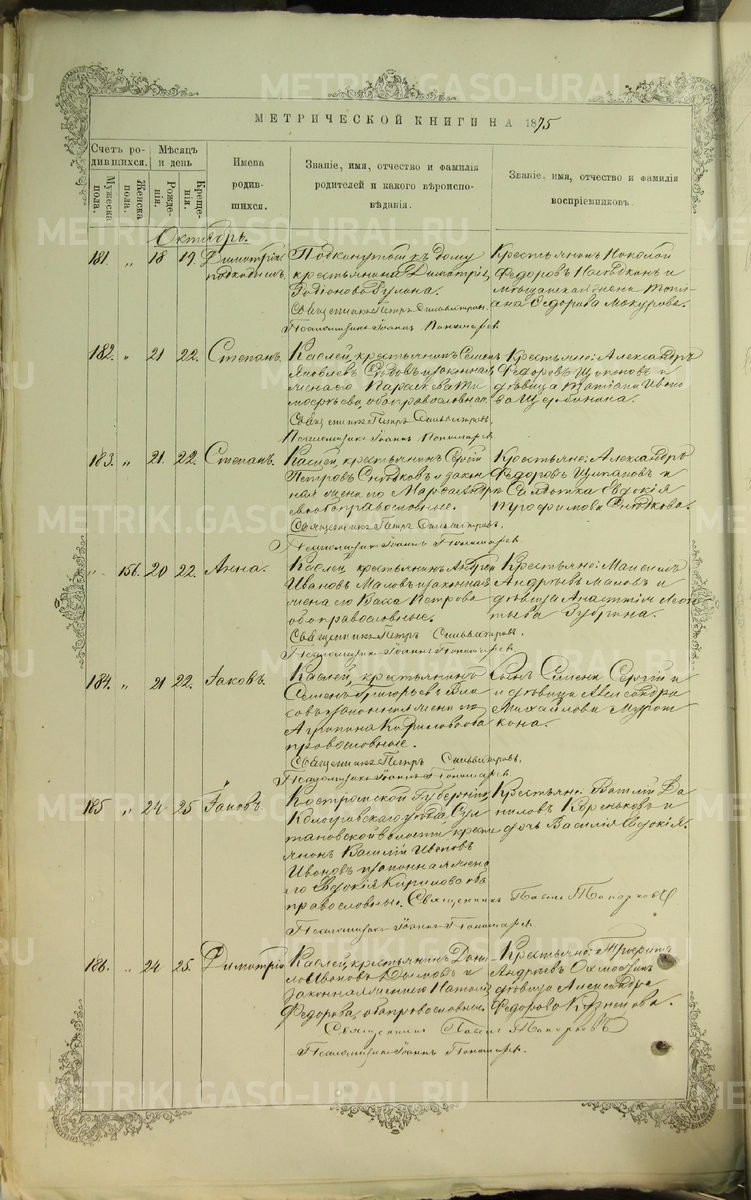 METRIKI.GASO-URAL.RU
МЕТРИЧЕСКОЙ КНИГИ НА 1875
Счетъ родившихся.
Мужеска пола.
Женска пола.
Мѣсяцъ и день
Рожденія.
Крещенія.
Имена
родив-
шихся.
Званіе, имя, отчество и фамилія
родителей и какого вѣроиспо-
вѣданія.
Званіе, имя, отчество и фамилія
воспріемниковъ.
Октябрь.
181. " 18 19. Димитрій
подкидышъ.
Подкинутый къ дому
крестьянина Димитрія
Родіонова
Священникъ Петръ Сильвестровъ.
Псаломщикъ Іоаннъ Пономаревъ
Крестьянинъ Николай
Федоровъ и
мѣщанская жена
Федорова
182. " 21 22. Степанъ.
Каслей, крестьянинъ Семенъ
Яковлевъ и законная
жена его Параскева Ти
моѳеева, оба православные.
Священникъ Петръ Сильвестровъ,
Псаломщикъ Іоаннъ Пономаревъ
Крестьяне: Александръ
Федоровъ Щипановъ и
дѣвица Татіана Ивано
ва Щербинина.
183. " 21. 22. Степанъ.
Каслей, крестьянинъ Сергій
Петровъ и закон
ная жена его Марѳа
оба православные.
Священникъ Петръ Сильвестровъ,
Псаломщикъ Іоаннъ Пономаревъ
Крестьяне: Александръ
Федоровъ Щипановъ и
Солдатка Евдокія
Трофимова
" 156. 20 22. Анна.
Каслей, крестьянинъ Андрей
Ивановъ Маловъ и законная
жена его Васса Петрова
оба православные.
Священникъ Петръ Сильвестровъ.
Псаломщикъ Іоаннъ Пономаревъ.
Крестьяне: Максимъ
Андреевъ Маловъ и
дѣвица Анастасія
184. " 21 22. Іаковъ.
Каслей, крестьянинъ
Семенъ Григорьевъ Вла
совъ и законная жена его
Агрипина Кирилова оба
православные.
Священникъ Петръ Сильвестровъ,
Псаломщикъ Іоаннъ Пономаревъ
Сынъ Семена Сергій и
дѣвица Александра
Михайлова
185 " 24 25 Іаковъ.
Костромской Губерніи,
Кологривскаго уѣзда
волости крест
янинъ Василій Ивановъ
Ивановъ и законная жена
его Евдокія Кирилова оба
православные. Священникъ Павелъ Топорковъ
Псаломщикъ Іоаннъ Пономаревъ.
Крестьяне: Василій Да
ниловъ и
дочь Василія Евдокія.
186. " 24 25. Димитрій
Каслей, крестьянинъ Дани
ло Ивановъ и
законная жена его Наталія
Федорова, оба православные.
Священникъ Павелъ Топорковъ
Псаломщикъ Іоаннъ Пономаревъ.
Крестьяне:
Андреевъ и
дѣвица Александра
Федорова Кузнецова.